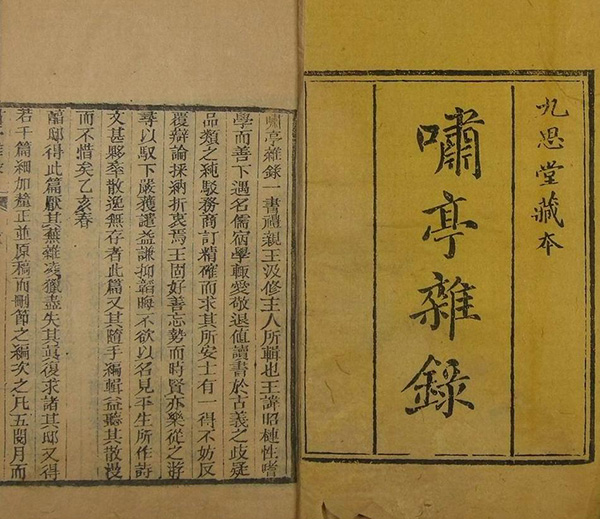 九思堂藏本
嘯亭雜錄
嘯亭雜錄一書禮親王汲修主人所輯也王諱昭槤性嗜
學而善下遇名儒宿學輒愛敬退值讀書於古義之歧疑
品類之純駁務商訂精確而求其所安士有一得不妨反
覆辯論採納折衷焉王固好善忘勢而時賢亦樂從之游
尋以馭下嚴獲譴益謙抑韜晦不欲以名見平生所作詩
文甚夥率散逸無存者此篇又其隨手編輯益聽其散漫
而不惜矣乙亥春
邸得此篇厭其蕪雜凌獵盡失其眞復求諸其邸又得
若干篇細加釐正並原稿而刪節之編次之凡五閱月而